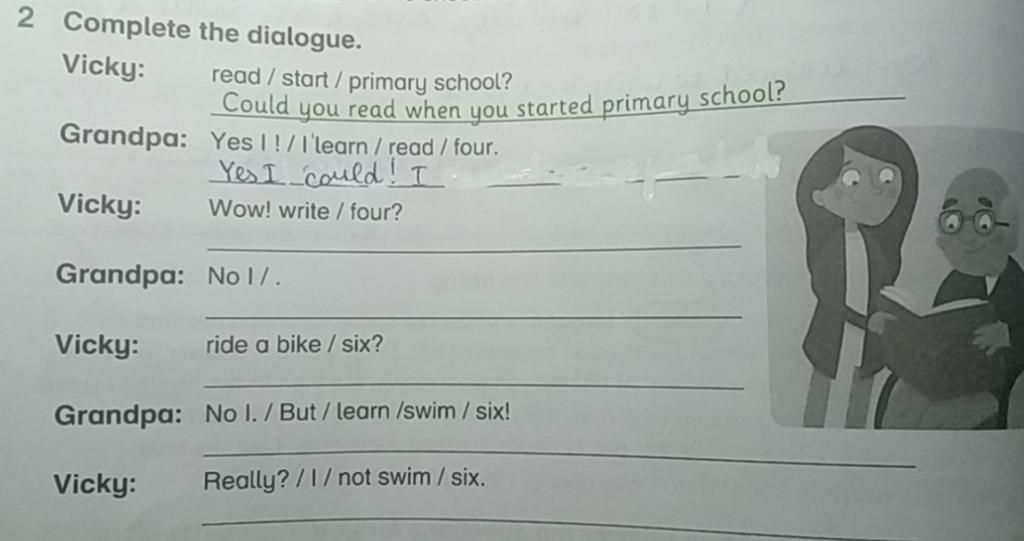 2 Complete the dialogue.
Vicky: read / start / primary school?
Could you read when you started primary school?
Grandpa: Yes I ! / I learn / read / four.
Yes I could! I
Vicky: Wow! write / four?
Grandpa: No I / .
Vicky: ride a bike / six?
Grandpa: No I. / But / learn /swim / six!
Vicky: Really? / I / not swim / six.